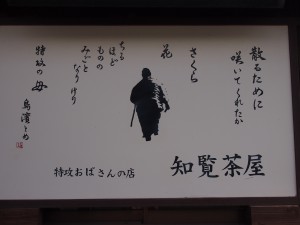 散るために
咲いてくれたか
さくら
花
ちる
ほど
ものの
みごと
なりけり
特攻の母
鳥濱とめ
特攻おばさんの店
知覧茶屋